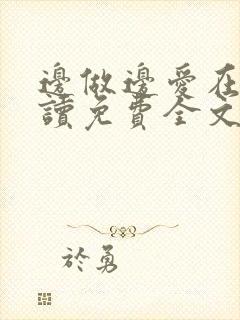 邊做邊愛在
讀免費全文
於勇